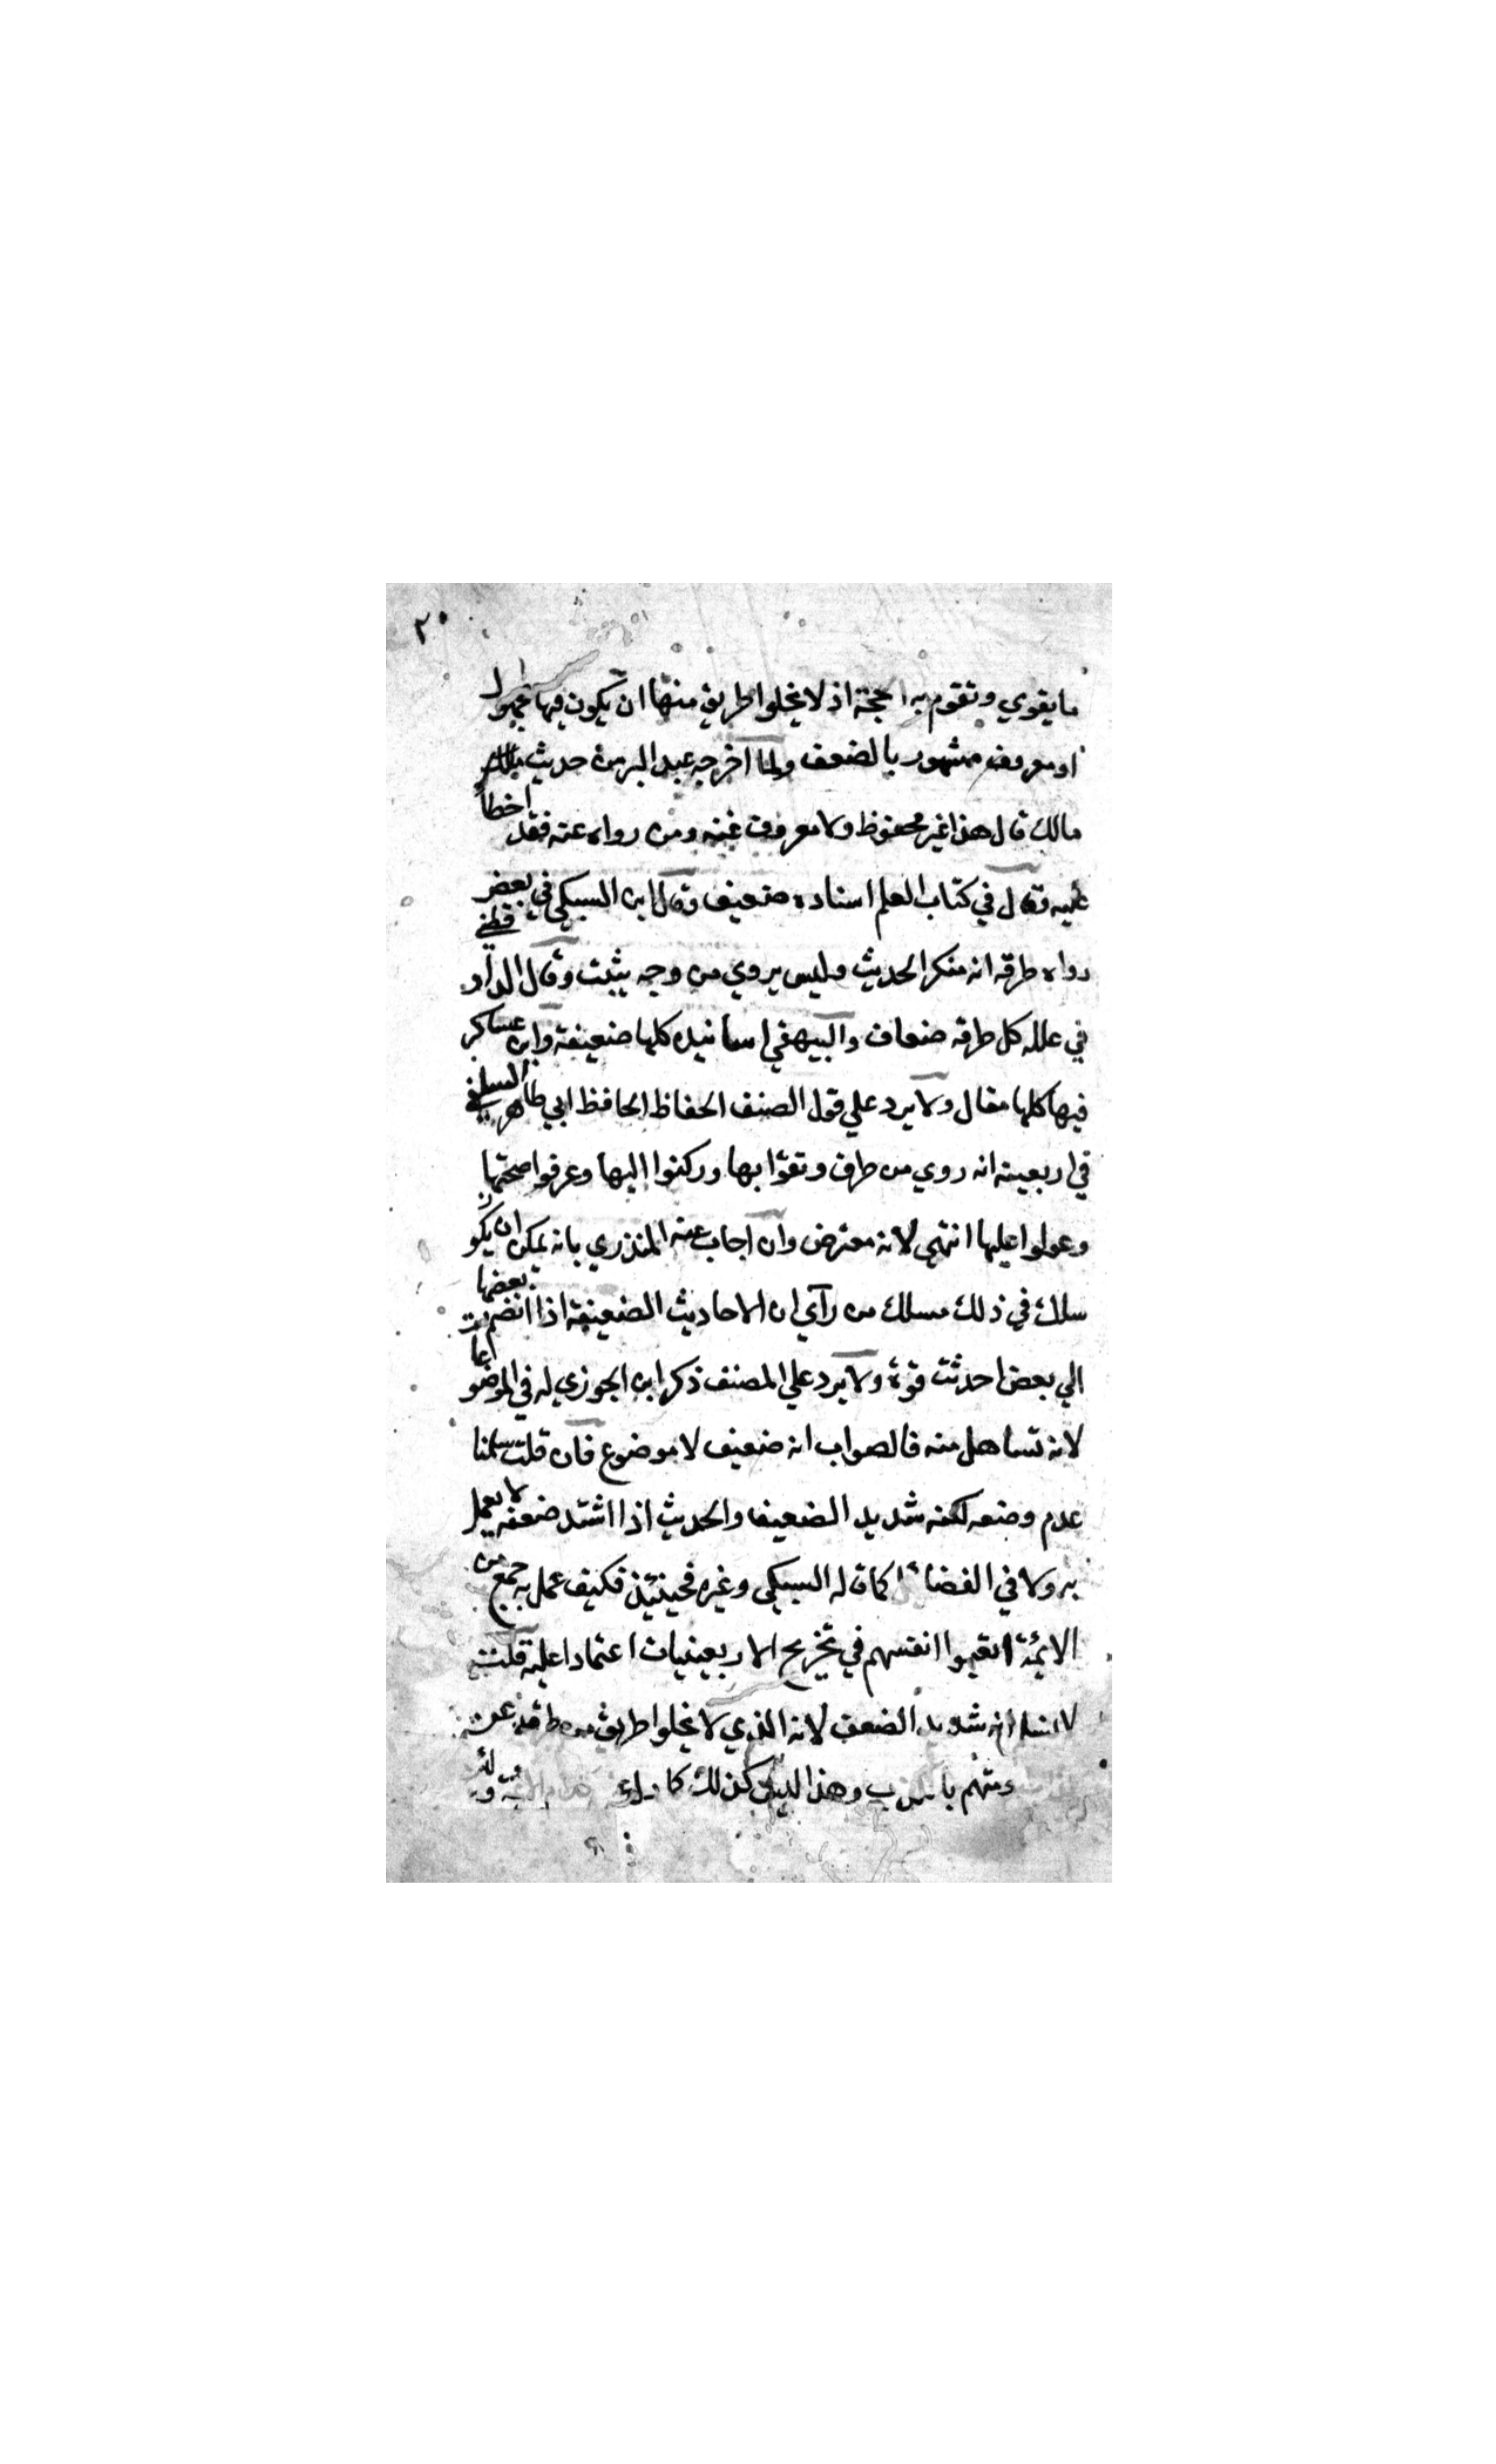 ٢٠
ما يقوي وتقوم به الحجة اذ لا يخلوا طريق منها ان يكون فيها مجهول
او معروف مشهور بالضعف ولما اخرجه عبد البر من حديث
مالك قال هذا غير محفوظ ولا معروف عنه ومن رواه عنه فقد اخطأ
عليه وقال في كتاب العلم اسناده ضعيف وقال ابن السبكي في بعض
رواه طرقه انه منكر الحديث وليس يروي من وجه يثبت وقال الدار قطني
في علله كل طرقه ضعاف والبيهقي اسانيده كلها ضعيفة وابن عساكر
فيها كلها مقال ولا يرد علي قول المصنف الحفاظ الحافظ ابي طاهر السلفي
في اربعينه انه روي من طرق وثقوا بها وركنوا اليها وعرفوا صحتها
وعولوا عليها انتهي لانه معترض وان اجاب عنه المنذري بانه يمكن ان يكون
سلك في ذلك مسلك من رآي ان الاحاديث الضعيفة اذا انضمت بعضها
الي بعض احدثت قوة ولا يرد علي المصنف ذكر ابن الجوزي له في الموضوعا
لانه تساهل منه فالصواب انه ضعيف لا موضوع فان قلت سلمنا
عدم وضعه لكنه شديد الضعيف والحديث اذا اشتد ضعفه لا يعمل
به ولا في الفضائل كما قاله السبكي وغيره فحينئذ فكيف عمل به جمع من
الايمة اتعبوا انفسهم في تخريج الاربعينيات اعتمادا عليه قلت
لا نسلم انه شديد الضعف لانه الذي لا يخلوا طريق من طرقه عن
متهم بالكذب وهذا ليس كذلك كما